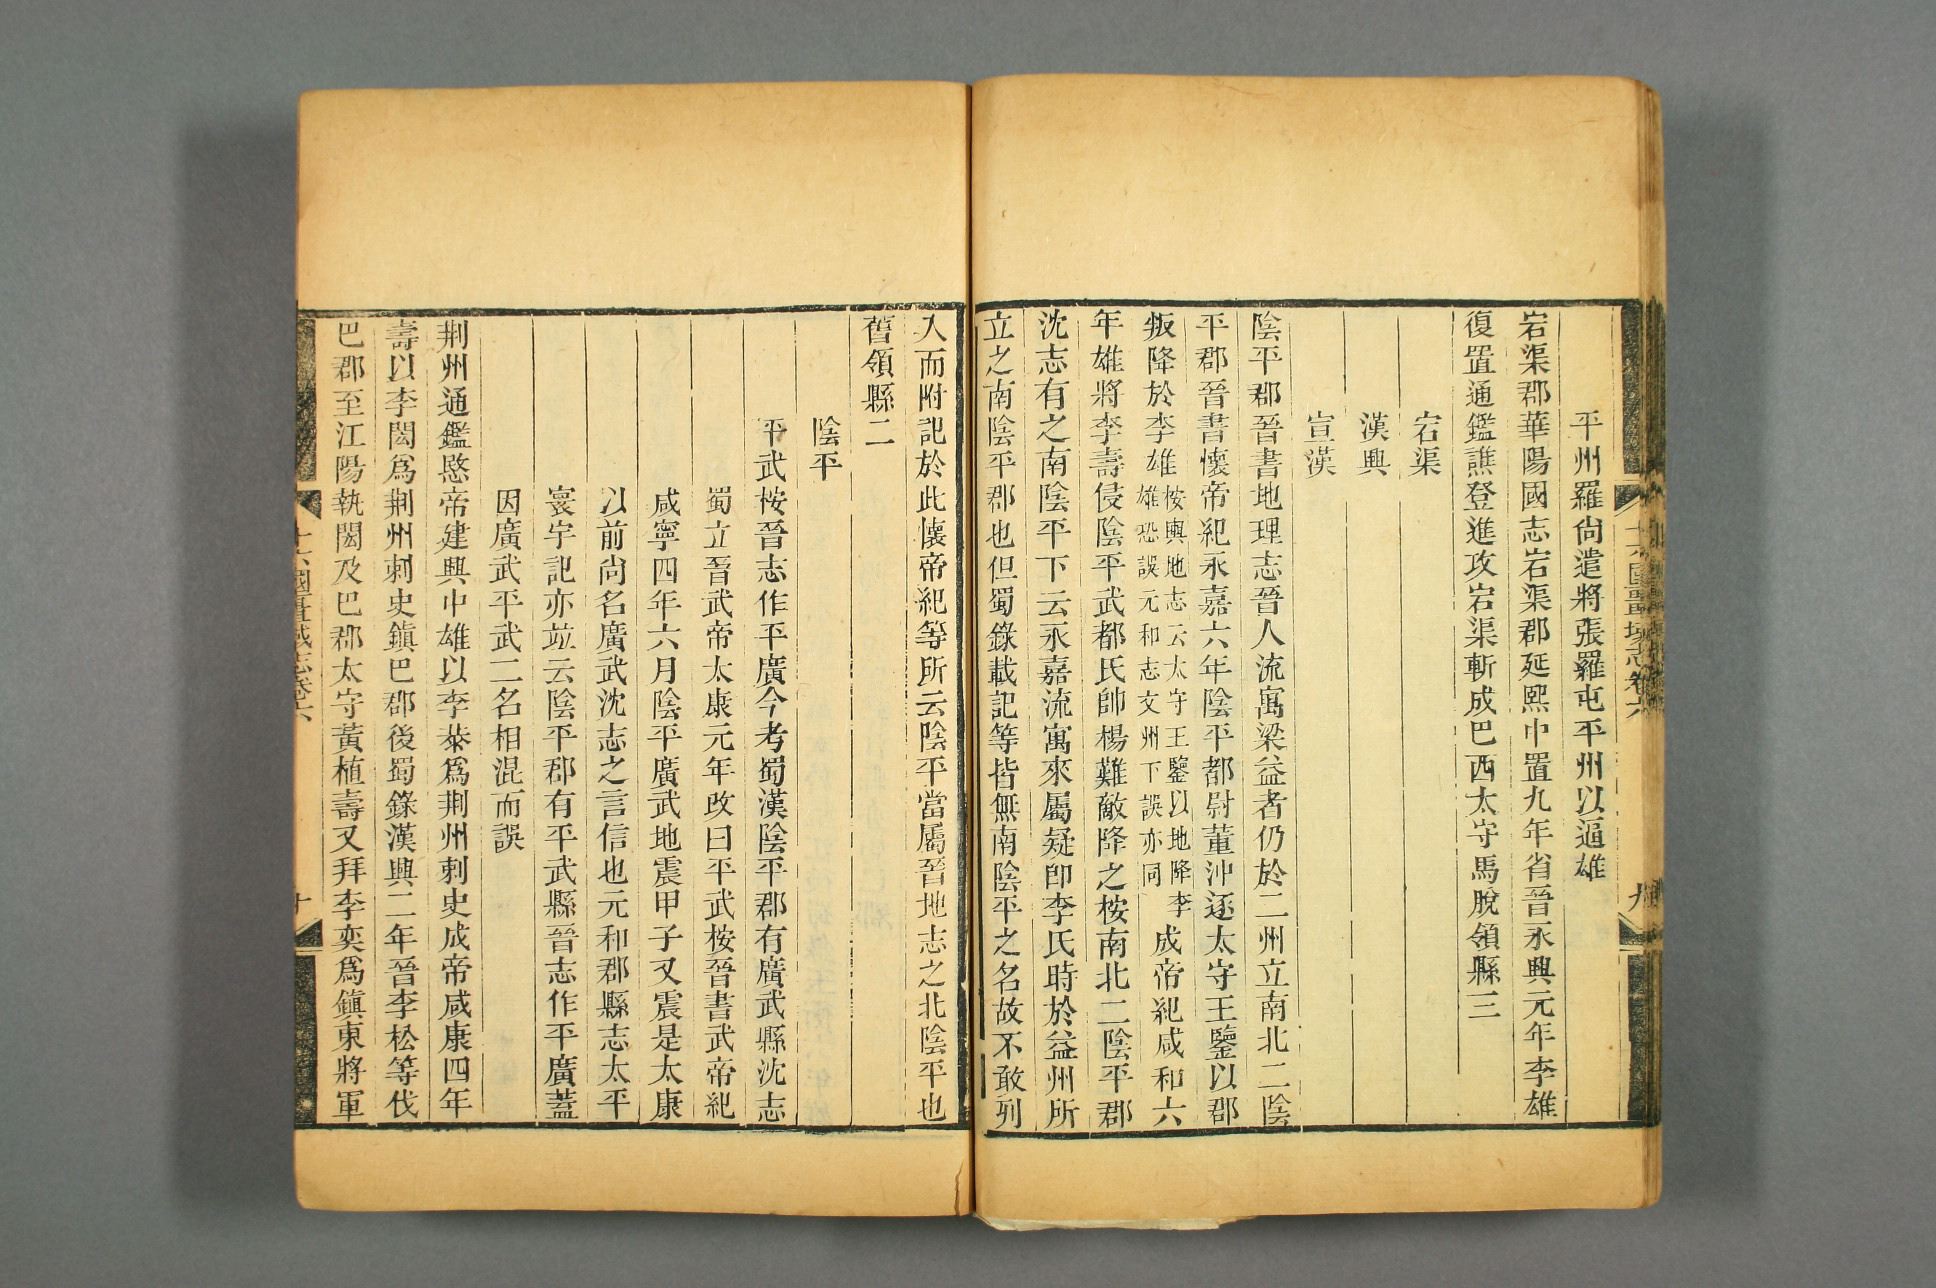 平州羅尙遣將張羅屯平州以逼雄
宕渠郡華陽國志宕渠郡延熙中置九年省晉永興元年李雄
復置通鑑譙登進攻宕渠斬成巴西太守馬脫領縣三
宕渠
漢興
宣漢
陰平郡晉書地理志晉人流寓梁益者仍於二州立南北二陰
平郡晉書懷帝紀永嘉六年陰平都尉董沖逐太守王鑒以郡
叛降於李雄桉輿地志云太守王鑒以地降李雄恐誤元和志文州下誤亦同成帝紀咸和六
年雄將李壽侵陰平武都氐帥楊難敵降之桉南北二陰平郡
沈志有之南陰平下云永嘉流寓來屬疑卽李氏時於益州所
立之南陰平郡也但蜀錄載記等皆無南陰平之名故不敢列
入而附記於此懷帝紀等所云陰平當屬晉地志之北陰平也
舊領縣二
陰平
平武桉晉志作平廣今考蜀漢陰平郡有廣武縣沈志
蜀立晉武帝太康元年改曰平武桉晉書武帝紀
咸寧四年六月陰平廣武地震甲子又震是太康
以前尙名廣武沈志之言信也元和郡縣志太平
寰宇記亦竝云陰平郡有平武縣晉志作平廣蓋
因廣武平武二名相混而誤
荆州通鑑愍帝建興中雄以李恭爲荆州刺史成帝咸康四年
壽以李閎爲荆州刺史鎭巴郡後蜀錄漢興二年晉李松等伐
巴郡至江陽執閎及巴郡太守黃植壽又拜李奕爲鎭東將軍
十六國疆域志卷六
九
十六國疆域志卷六
十